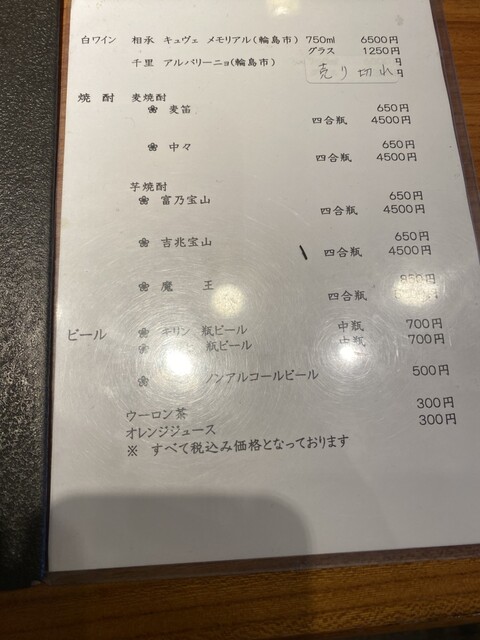 白ワイン 相承 キュヴェ メモリアル(輪島市) 750ml 6500円
グラス 1250円
千里 アルバリーニョ(輪島市) 円
売り切れ 円
焼 酎 麦焼酎
❀ 麦笛 650円
四合瓶 4500円
❀ 中々 650円
四合瓶 4500円
芋焼酎
❀ 富乃宝山 650円
四合瓶 4500円
❀ 吉兆宝山 650円
四合瓶 4500円
❀ 魔 王 850円
四合瓶 円
ビール ❀ キリン 瓶ビール 中瓶 700円
❀ 瓶ビール 中瓶 700円
❀ ノンアルコールビール 500円
ウーロン茶 300円
オレンジジュース 300円
※ すべて税込み価格となっております